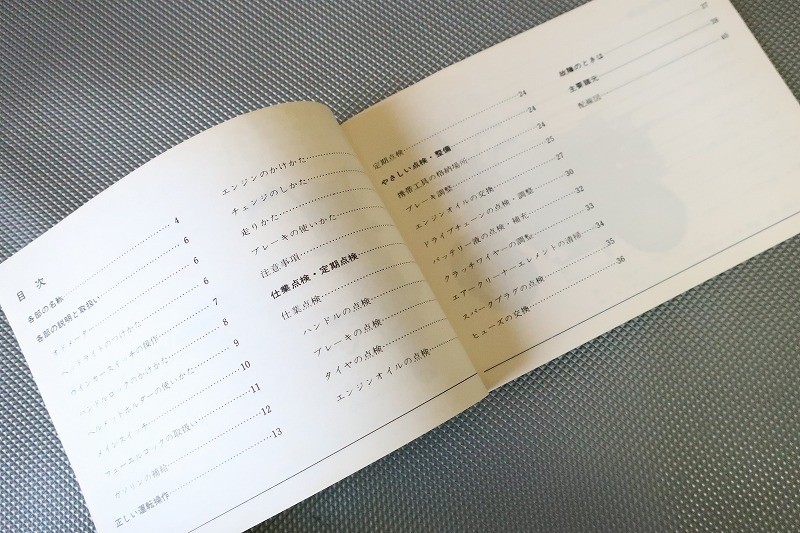 目次
各部の名称 4
各部の説明と取扱い 6
オドメーター 6
ヘッドライトのつけかた 6
ウインカースイッチの操作 7
ハンドルロックのかけかた 8
ヘルメットホルダーの使いかた 9
メインスイッチ 10
フューエルコックの取扱い 11
ガソリンの補給 12
正しい運転操作 13
エンジンのかけかた
チェンジのしかた
走りかた
ブレーキの使いかた
注意事項
仕業点検・定期点検
仕業点検
ハンドルの点検
ブレーキの点検
タイヤの点検
エンジンオイルの点検
定期点検 24
やさしい点検・整備 24
携帯工具の格納場所 24
ブレーキ調整 25
エンジンオイルの交換 27
ドライブチェーンの点検・調整 30
バッテリー液の点検・補充 32
クラッチワイヤーの調整 33
エアークリーナーエレメントの清掃 34
スパークプラグの点検 35
ヒューズの交換 36
故障のときは 37
主要諸元 38
配線図 40